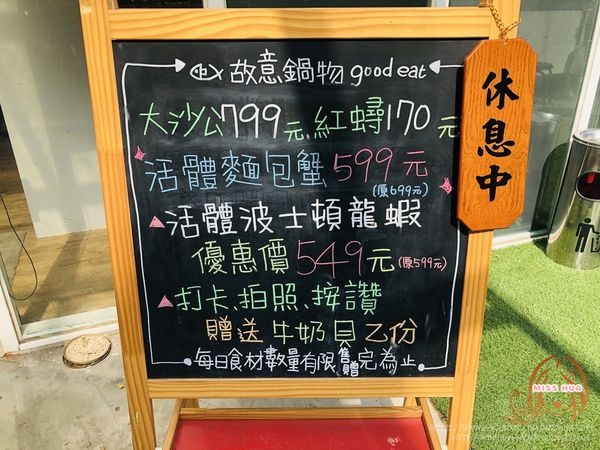 故意鍋物 good eat
大沙公799元.紅蟳170元
活體麵包蟹599元
(原699元)
活體波士頓龍蝦
優惠價549元(原599元)
打卡、拍照、按讚
贈送牛奶貝乙份
每日食材數量有限售贈完為止
休息中
MISS HUA